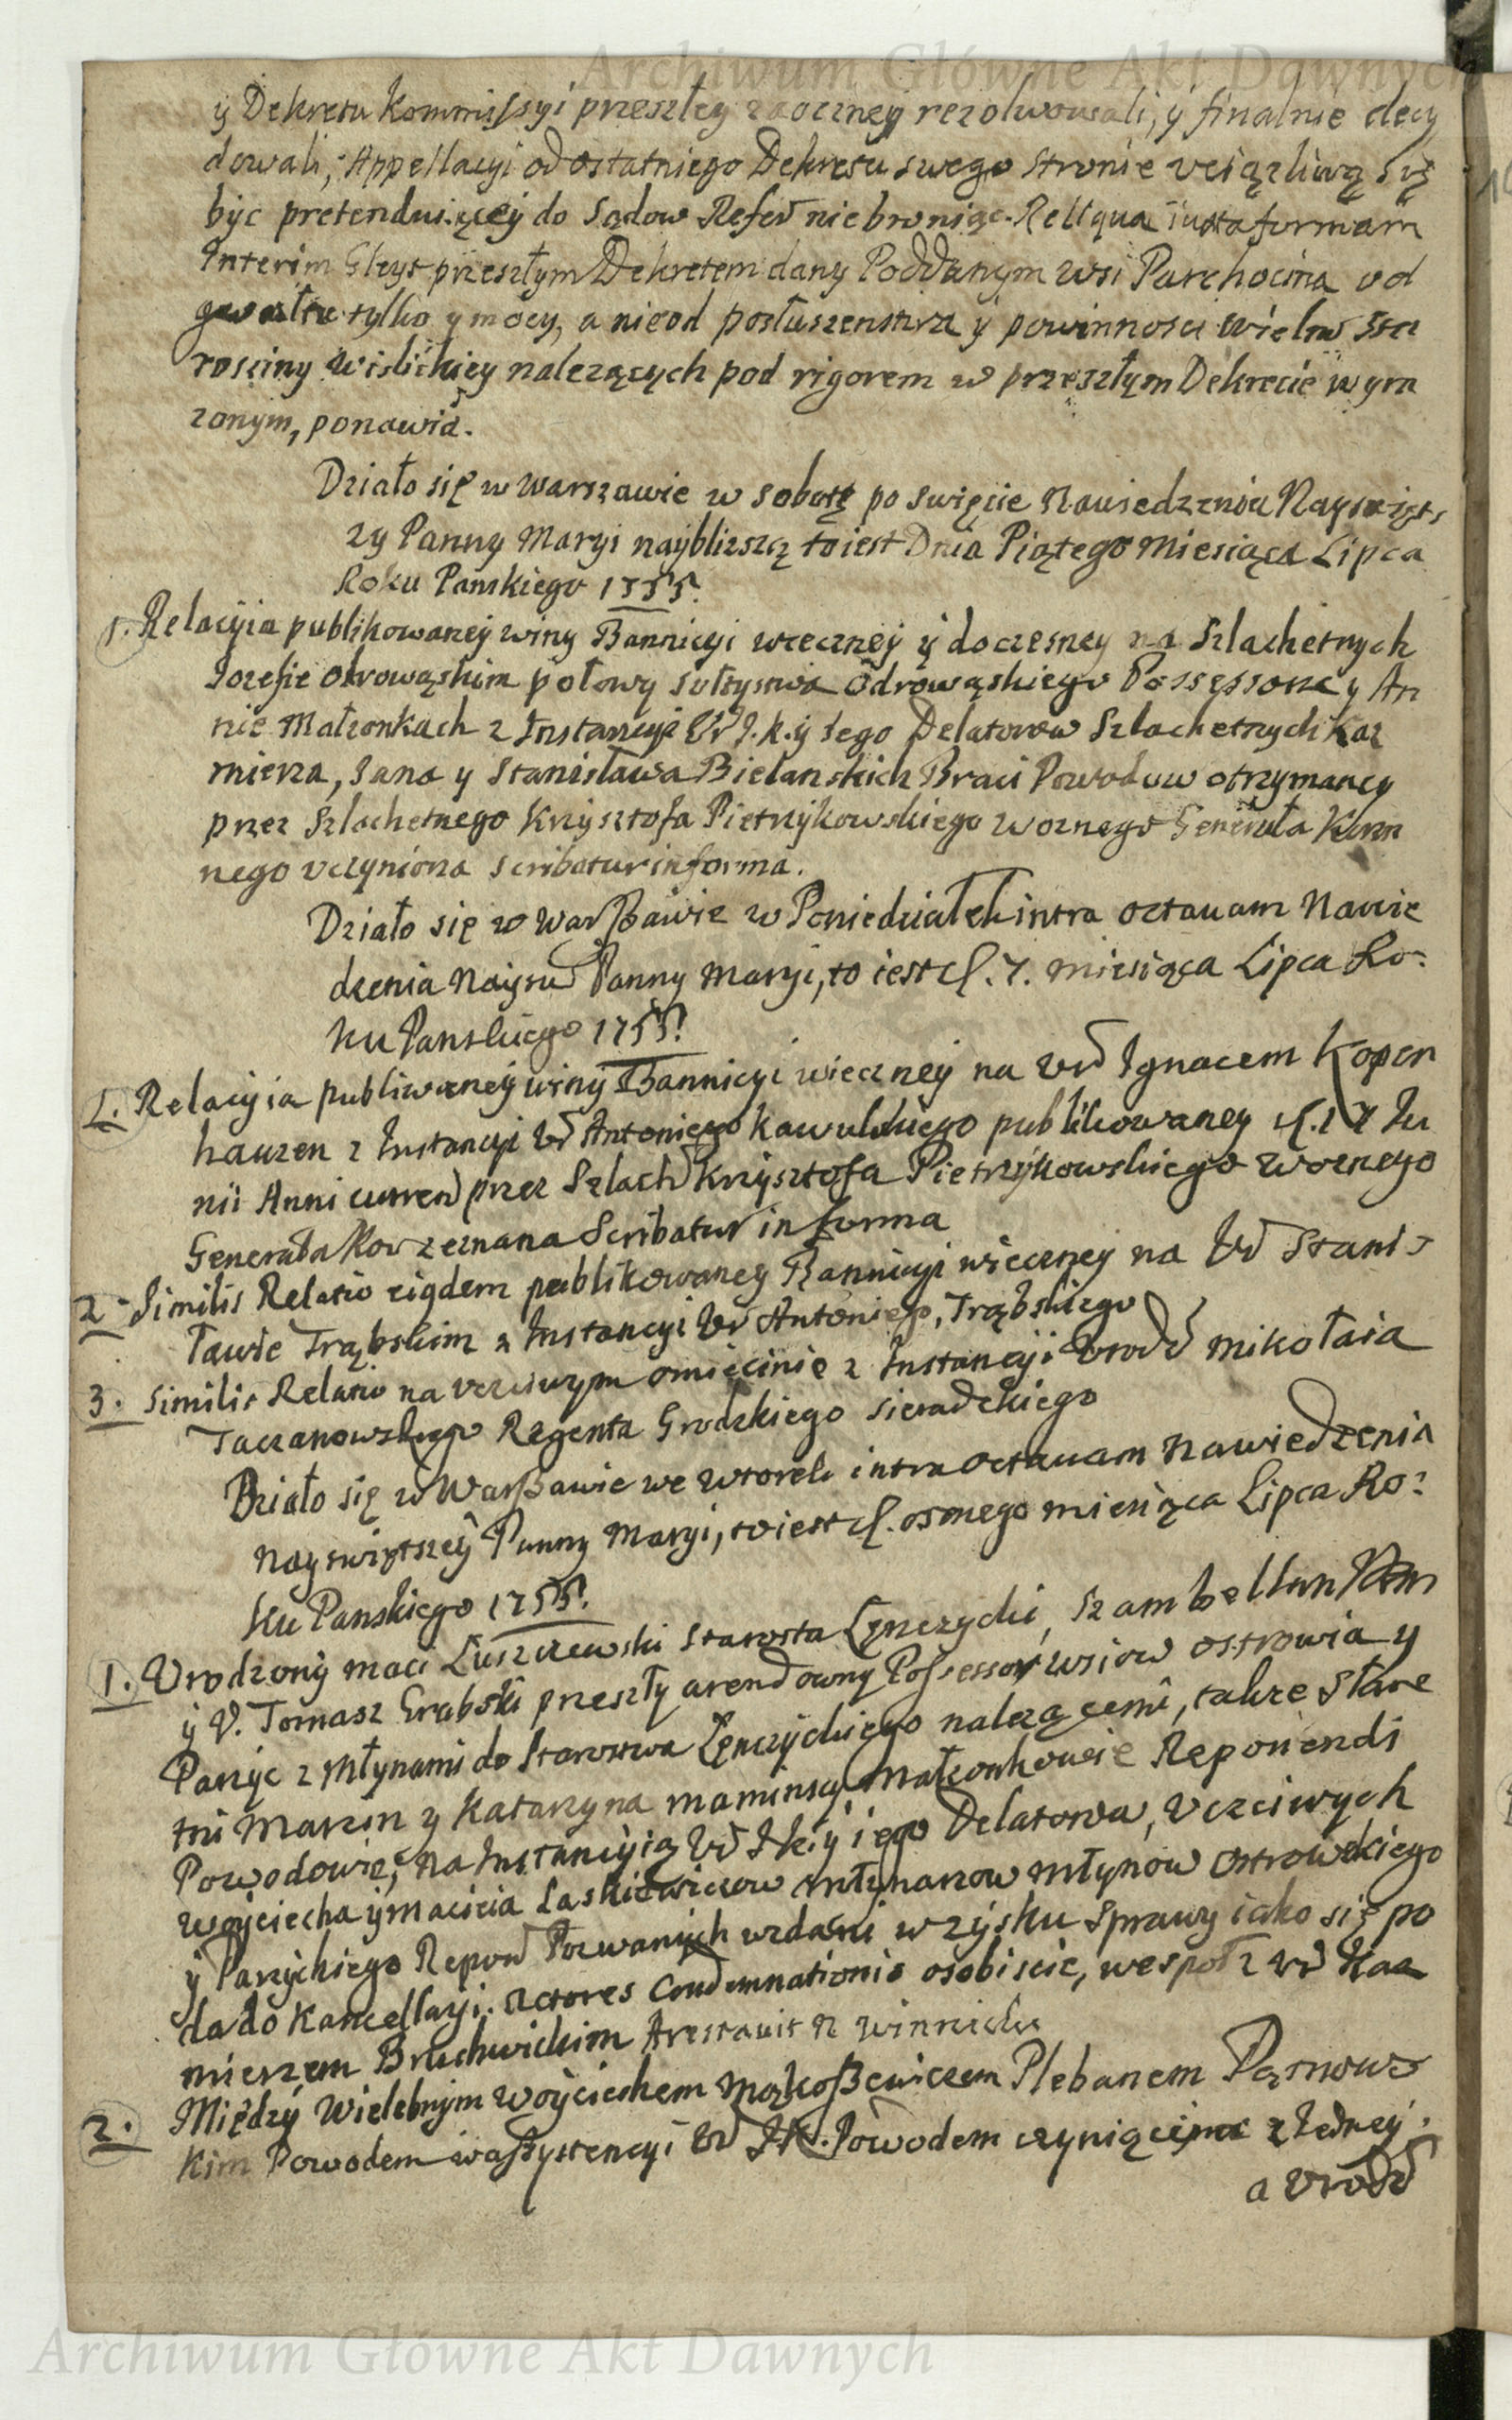 Archiwum Główne Akt Dawnych
ÿ Dekretu Kommissyi przeszłey zaoczneÿ rezolwowali, ÿ finalnie decy
dowali, Appellacyi od ostatniego Dekretu swego stronie uciązliwą Się
być pretenduiąceÿ do Sądow Refer nie broniąc. Reliqua iuxta formam
Interim Gleyt przeszłym Dekretem dany Poddanym wsi Parchocina od
gwałtu tylko y mocy, a nie od posłuszenstwa ÿ powinnosci Wielm Sta
rosciny Wislickiey nalezących pod rigorem w przeszłym Dekrecie wyra
zonym, ponawia.
Działo się w Warszawie w Sobotę po swięcie Nawiedzenia Nayswięts
zy Panny Maryi nayblizszą to iest Dnia Piątego Miesiąca Lipca
Roku Panskiego 1755.
1. Relacÿia publikowaneÿ winy Bannicyi wieczneÿ ÿ doczesney na Szlachetnych
Jozefie Odrowąskim połowy sołtystwa Odrowąskiego Possessorze y An
nie Małzonkach z Instancyi J. K. ÿ Jego Delatorow Szlachetnych Kaz
mierza, Jana y Stanisława Bielanskich Braci Powodow otrzymaney
przez Szlachetnego Krzysztofa Pietrzykowskiego Woznego Generała Koron
nego uczyniona scribatur in forma.
Działo się w Warszawie w Poniedziałek intra octavam Nawie
dzenia Nayśw Panny Maryi, to iest d. 7. miesiąca Lipca Ro:
ku Panskiego 1755.
1. Relacyia publiwaneÿ winÿ Bannicyi wieczneÿ na Ur Ignacem Kopen
hauzen z Instancyi Ur Antoniego Kawulskiego publikowaney d. 17 Ju
nii Anni curren przez Szlach Krzysztofa Pietrzykowskiego Woznego
Generała Kor zeznana Scribatur in forma
2. Similis Relatio eiqdem publikowaney Bannicyi wieczney na Ur Stanis
ławie Trąbskim z Instancyi Ur Antoniego Trąbskiego
3. Similis Relatio na uczciwym Omięcinie z Instancyi Urodz Mikołaia
Taczanowskiego Regenta Grodzkiego Sieradzkiego
Działo się w Warszawie we wtorek intra octavam Nawiedzenia
Nayswiętszeÿ Panny Maryi, to iest d. osmego miesiąca Lipca Ro:
ku Panskiego 1755.
1. Urodzonÿ Maci Łuszczewski Starosta Łęczycki, Szambellan
ÿ U. Tomasz Grabski przeszłÿ arendowny Possessor wsiow Ostrowia y
Parzyc z Młynami do Starostwa Łęczyckiego nalezącemi, takze Sławe
tni Marcin y Katarzyna Maminscy Małzonkowie Reponendi
Powodowie, na Instancyią Ur J K ÿ iego Delatora, Uczciwych
Woyciecha ÿ Macieia Laskiewiczow Młynarzow Młynow Ostrowskiego
ÿ Parzyckiego Repon Pozwanÿch wzdani w zÿsku Sprawy iako się po
da do Kancellaryi. Actores Condemnationis osobiscie, wespoł z Ur Kaz
mierzem Bruchwickim Arestavit N Winnicki
2. Międzÿ Wielebnÿm Woyciechem Małkoszewiczem Plebanem
kim Powodem w assystencyi Ur JK. Powodem czyniącÿm z Jedney.
a Urodz
Archiwum Główne Akt Dawnych